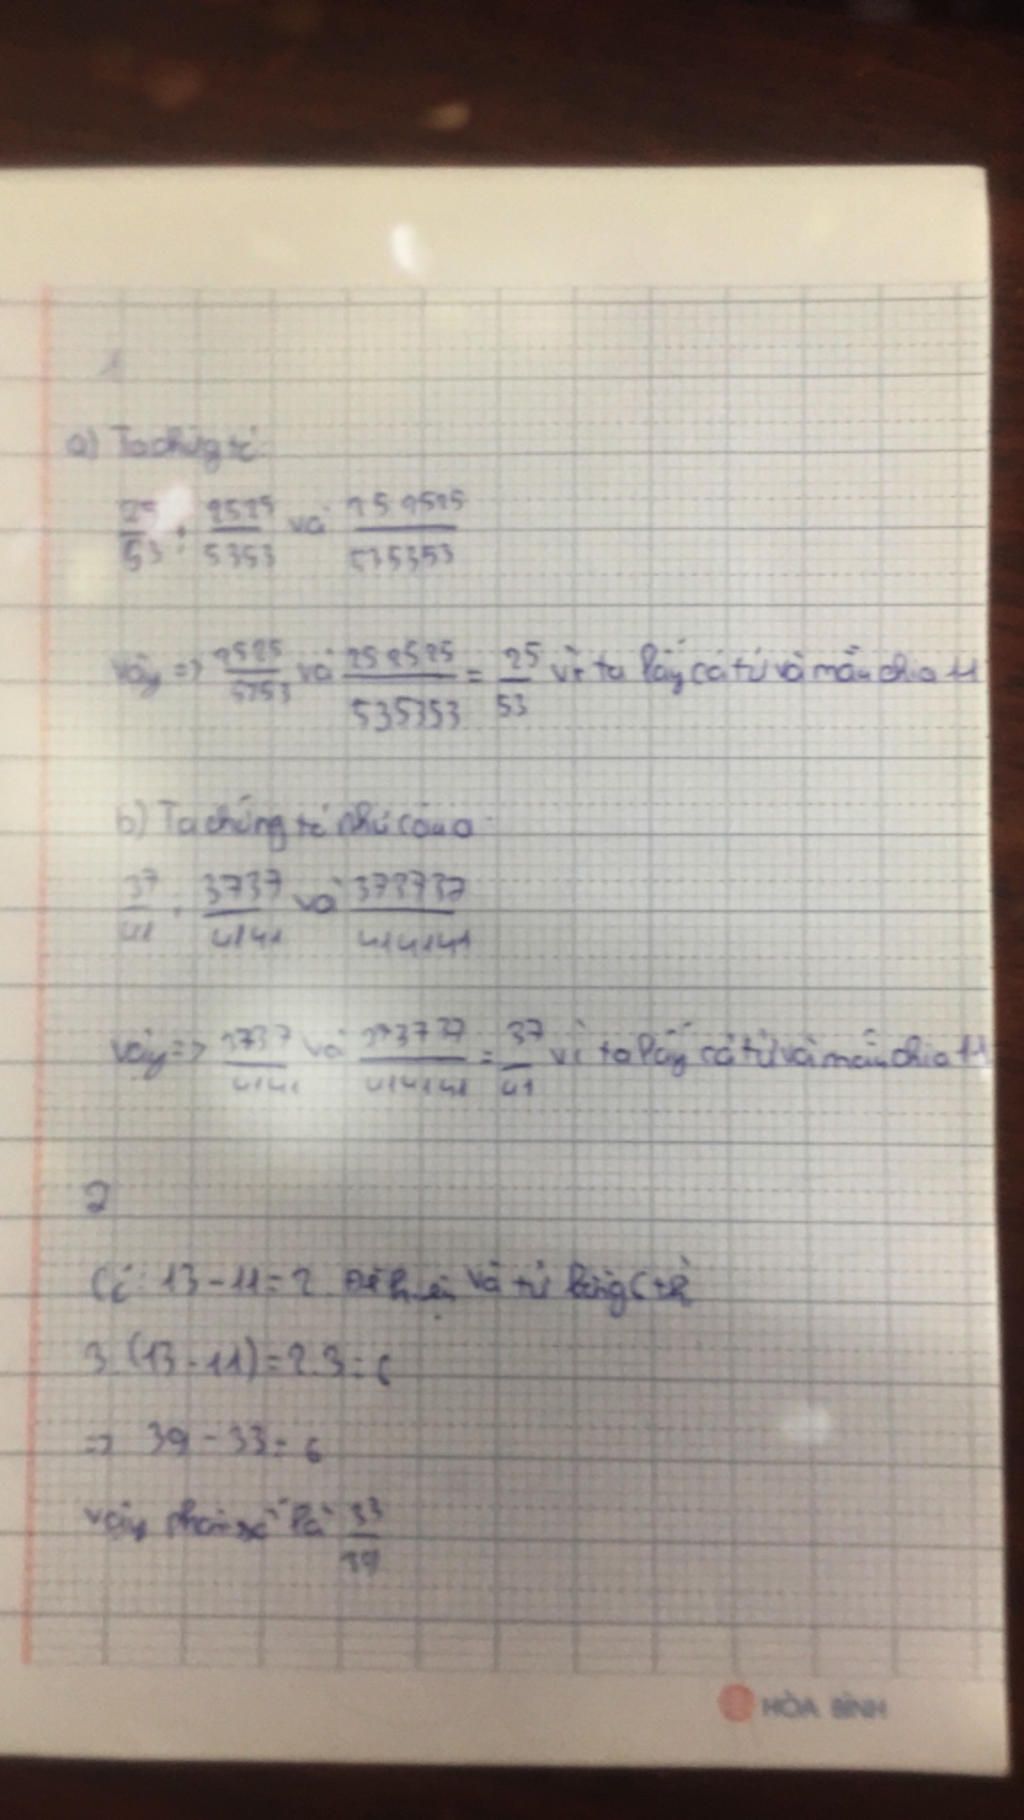 1
a) Ta chứng tỏ
25/53 ; 2525/5353 và 252525/535353
vậy => 2525/5353 và 252525/535353 = 25/53 vì ta lấy cả tử và mẫu chia 11
b) Ta chứng tỏ như câu a
37/41 ; 3737/4141 và 373737/414141
vậy => 3737/4141 và 373737/414141 = 37/41 vì ta lấy cả tử và mẫu chia 11
2
13 - 11 = 2 và tử bằng 6 thì
3. (13 - 11) = 2.3 = 6
=> 39 - 33 = 6
vậy phân số là 33/39
HÒA BÌNH